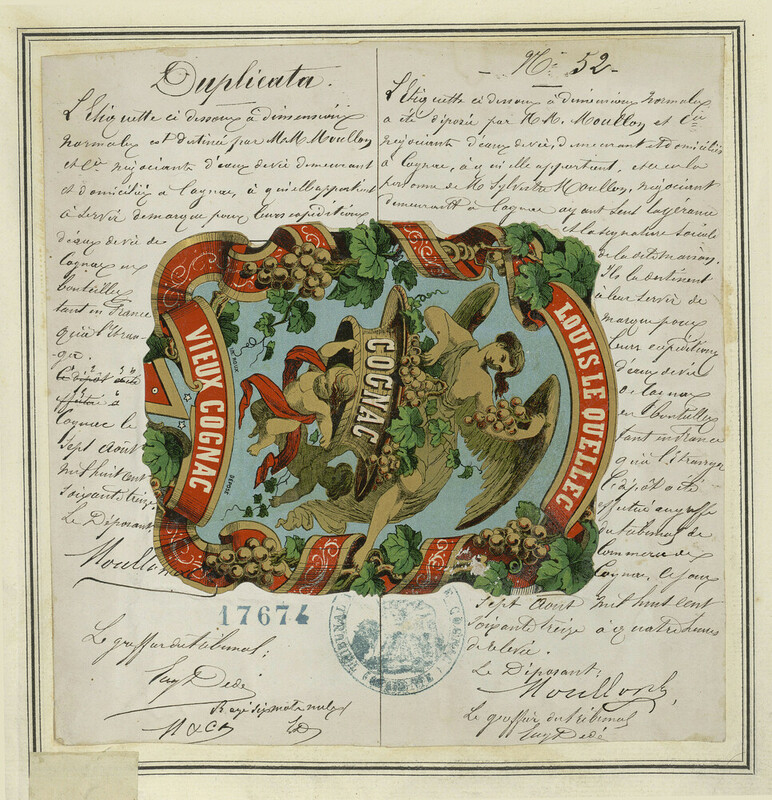 Duplicata.
L'Etiquette ci dessous à dimensions
normales est destinée par MM. Moullon
et Cie négociants d'eaux de vie demeurant
et domiciliés à Cognac, à qui elle appartient
à servir de marque pour leurs expéditions
d'eaux de vie de
Cognac en
bouteilles
tant en France
qu'à l'étran-
ger.
Cognac le
sept Août
mil huit cent
soixante treize
Le Déposant
Moullon
17674
Le greffier du tribunal:
Rayé six mots nuls
M & C
No 52
L'Etiquette ci dessous à dimensions normales
a été déposée par MM. Moullon et Cie
négociants d'eaux de vie, demeurant et domiciliés
à Cognac, à qui elle appartient, et ce en la
personne de M. Sylvestre Moullon, négociant
demeurant à Cognac ayant seul la gérance
et la signature sociale
de la dite maison.
Ils la destinent
à leur servir de
marque pour
leurs expéditions
d'eaux de vie
de Cognac
en bouteilles
tant en France
qu'à l'étranger
Le dépôt a été
effectué au greffe
du tribunal de
commerce de
Cognac, ce jour
sept Août mil huit cent
soixante treize à quatre heures
de levée.
Le Déposant:
Moullon
Le greffier du tribunal
VIEUX COGNAC
COGNAC
LOUIS LE QUELLEC
DÉPOSÉ
TRIBUNAL